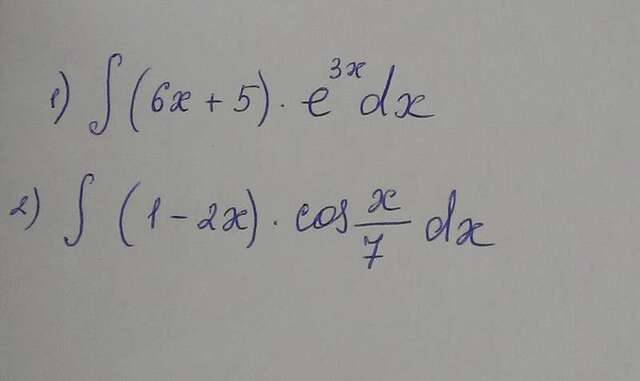 1) ∫(6x + 5) · e^{3x} dx
2) ∫ (1 - 2x) · cos \frac{x}{7} dx